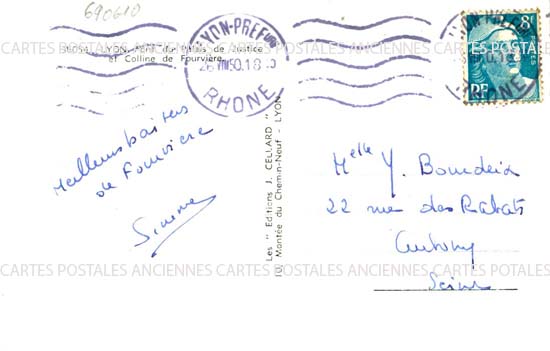 690610
LYON-PREFre
26 VIII 50.18
RHONE
8F
POSTES
RF
LYON. - Pont du Palais de Justice
et Colline de Fourvière
CARTES POSTALES ANCIENNES CARTES POSTALES ANCIENNES CARTES POSTALES
Meilleurs baisers
de Fourvière
Simone
Les " Editions J. CELLARD "
10, Montée du Chemin-Neuf - LYON
Melle Y. Bourdeix
22 rue des Rabats
Antony
Seine
CARTES POSTALES ANCIENNES CARTES POSTALES ANCIENNES CARTES POTALES